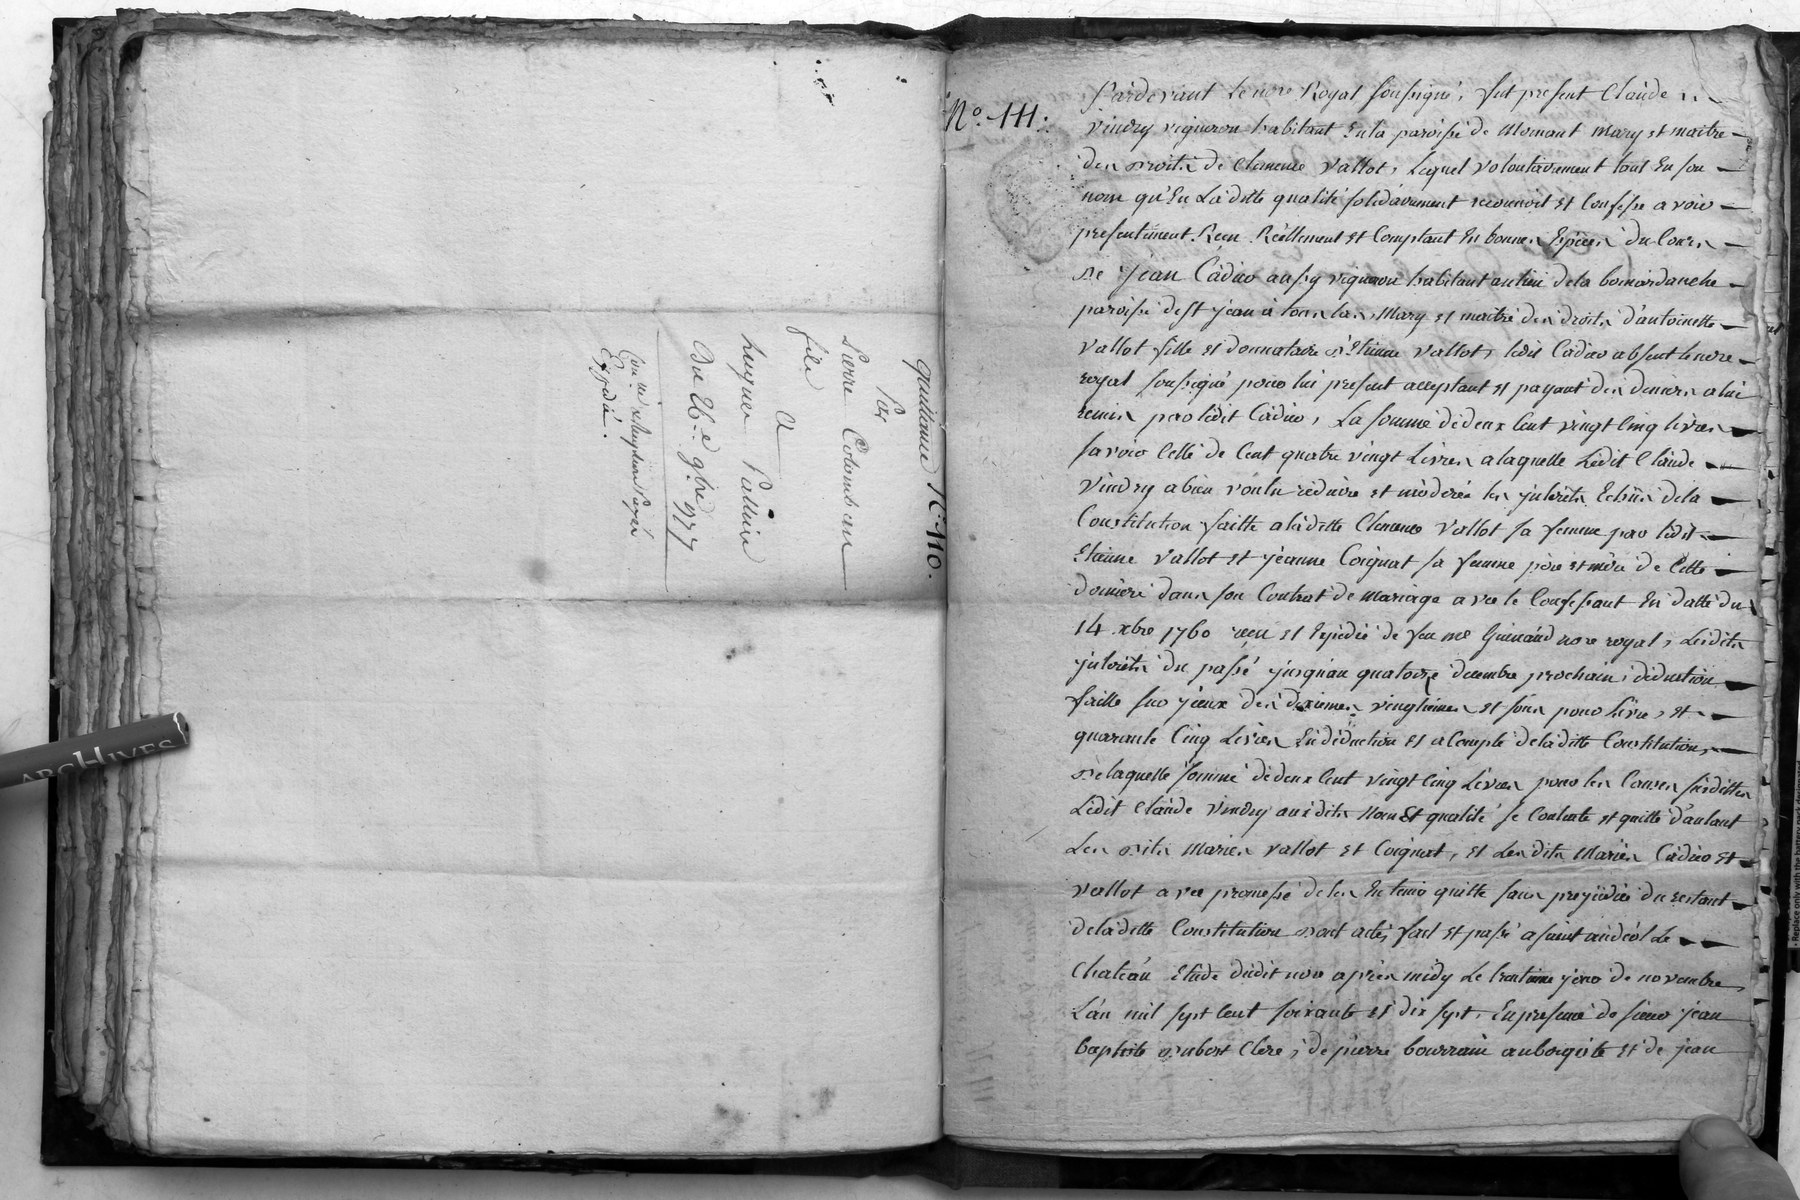 Quittance N.º 110.
Par
Pierre Colomban
fils
A
hugues
Du 26.e 9bre 1777
Expédié.
ARCHIVES
Nº. 111.
Pardevant le nore Royal soussigné, fut present Claude
vindry vigneron habitant En la paroisse de Mornant mary et maitre
des droits de Clemence Vallot, Lequel volontairement tant En son
nom qu'En La ditte qualité solidairement reconnoit et Confesse avoir
presentement Reçu Réellement et Comptant En bonnes Espèces du Cours
de jean Cadier aussy vigneron habitant au lieu de la bomardanche
paroisse de St jean à tourslas, Mary et maitre des droits d'antoinette
Vallot fille et donnataire d'Etienne Vallot, ledit Cadier absent le nore
royal soussigné pour lui present acceptant et payant des deniers a lui
remis par ledit Cadier, La somme de deux Cent vingt Cinq livres
savoir Celle de Cent quatre vingt Livres a laquelle Ledit Claude
Vindry a bien voulu réduire et modérer les jnterêts Echus de la
Constitution faitte a la ditte Clemence Vallot sa femme par ledit
Etienne Vallot et jeanne Coignat sa femme père et mère de Cette
dernière dans son Contrat de Mariage avec le Confessant En datte du
14 xbre 1760 reçu et Expédié de feu me Guinand nore royal, Lesdits
jnterêts du passé jusqu'au quatorze decembre prochain, déduction
faitte sur jceux des dixiemes vingtiemes et sous pour livre, et
quarante Cinq Livres En déduction et a Compte de la ditte Constitution,
de laquelle somme de deux Cent vingt Cinq Livres pour les Causes susdittes
Ledit Claude Vindry auxdits Nom Et qualité se Contente et quitte d'autant
Les dits Mariés Vallot et Coignat, et Les dits Mariés Cadier et
Vallot avec promesse de les En tenir quitte sans prejudice du restant
de la ditte Constitution dont acte, fait et passé a saint andéol Le
Chateau Etude dudit nore après midy Le trentieme jour de novembre,
L'an mil sept Cent soixante et dix sept, En presence de sieur jean
baptiste dubost Clerc, de pierre bourrain aubergiste et de jean